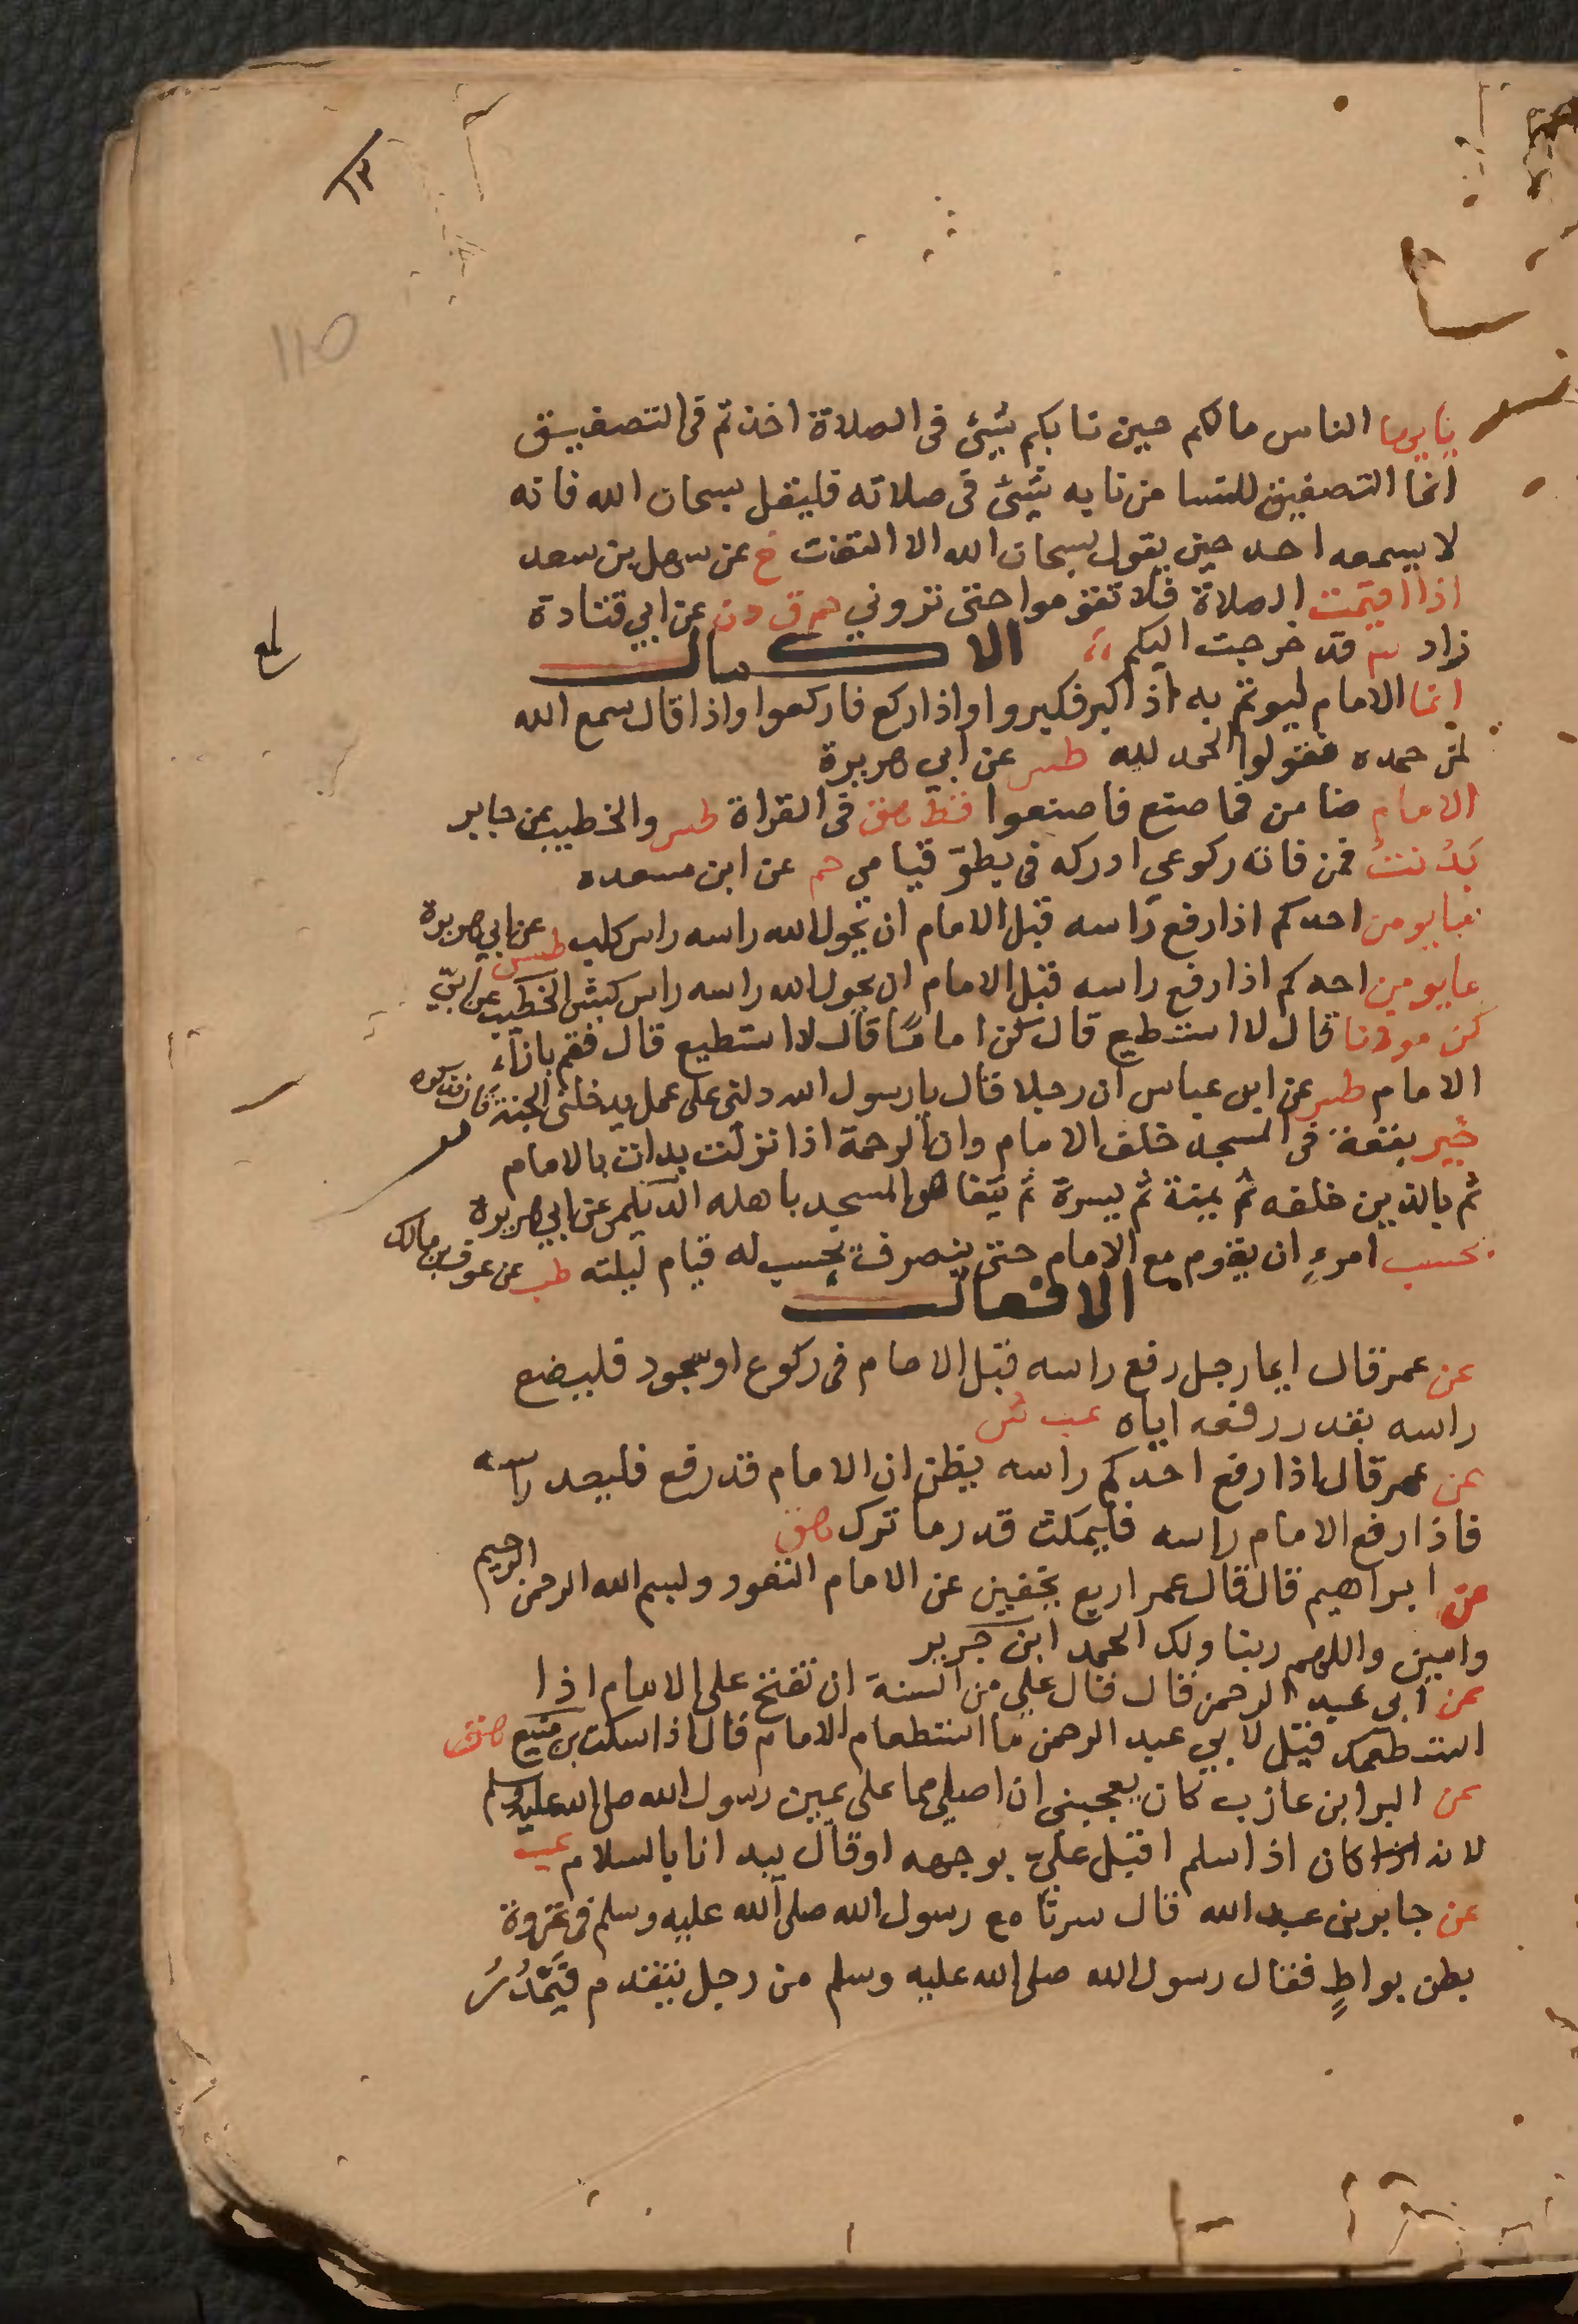 ١٣
110
يايها الناس مالكم حين نابكم شيئ في الصلاة اخذتم في التصفيق
انما التصفيق للنسا من نابه شيئ في صلاته فليقل سبحان الله فانه
لا يسمعه احد حين يقول سبحان الله الا التفت خ عن سهل بن سعد
اذا اقيمت الصلاة فلا تقوموا حتى تروني حم ق د ن عن ابي قتادة
زاد قد خرجت اليكم الاكمال
انما الامام ليوتم به اذ اكبر فكبروا واذا ركع فاركعوا واذا قال سمع الله
لمن حمده فقولوا الحمد لله طس عن ابي هريرة
الامام ضامن فما صنع فاصنعوا قط هق في القراة طس والخطيب عن جابر
بدنت فمن فاته ركوعي ادركه في بطؤ قيامي حم عن ابن مسعده
احدكم اذا رفع راسه قبل الامام ان يحول الله راسه راس كلب طس عن ابي هريرة
مايومن احدكم اذا رفع راسه قبل الامام ان يحول الله راسه راس كبش الخطيب عن
كن موذنا قال لا استطيع قال كن اماما قال لا استطيع قال فقم بازاء
الامام طس عن ابن عباس ان رجلا قال يارسول الله دلني على عمل يدخلني الجنة قال فذكره
خير بقعة في المسجد خلف الامام وان الرحمة اذا نزلت بدات بالامام
ثم بالذين خلفه ثم يمنة ثم يسرة ثم يتغاص المسجد باهله الديلمي عن ابي هريرة
بحسب امرءٍ ان يقوم مع الامام حتى ينصرف يحسب له قيام ليلته طب عن عوف بن مالك
الافعال
عن عمر قال ايما رجل رفع راسه قبل الامام في ركوع او سجود فليضع
راسه بقدر رفعه اياه عب ش
عن عمر قال اذا رفع احدكم راسه يظن ان الامام قد رفع فليعد راسه
فاذا رفع الامام راسه فليمكث قدر ما ترك هق
عن ابراهيم قال قال عمر اربع يخفين عن الامام التعوذ وبسم الله الرحمن الرحيم
وامين واللهم ربنا ولك الحمد ابن جرير
عن ابي عبد الرحمن قال قال علي من السنة ان تفتح على الامام اذا
استطعمك قيل لابي عبد الرحمن ما استطعام الامام قال اذا سكت بن منيع هق
عن البرا بن عازب كان يعجبني ان اصلي مما على يمين رسول الله صلى الله عليه وسلم
لانه كان اذا سلم اقبل علي بوجهه او قال يبدانا بالسلام عب
عن جابر بن عبد الله قال سرنا مع رسول الله صلى الله عليه وسلم في غزوة
بطن بواطٍ فقال رسول الله صلى الله عليه وسلم من رجل يتقدم فيمدر